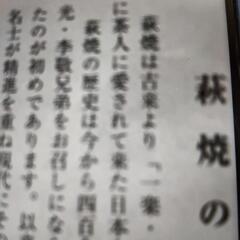 萩焼の
萩焼は古来より「一楽・
に茶人に愛されて来た日本
萩焼の歴史は今から四百
光・李敬兄弟をお召しにな
たのが初めであります。以来
名士が精進を重ね現代にそ